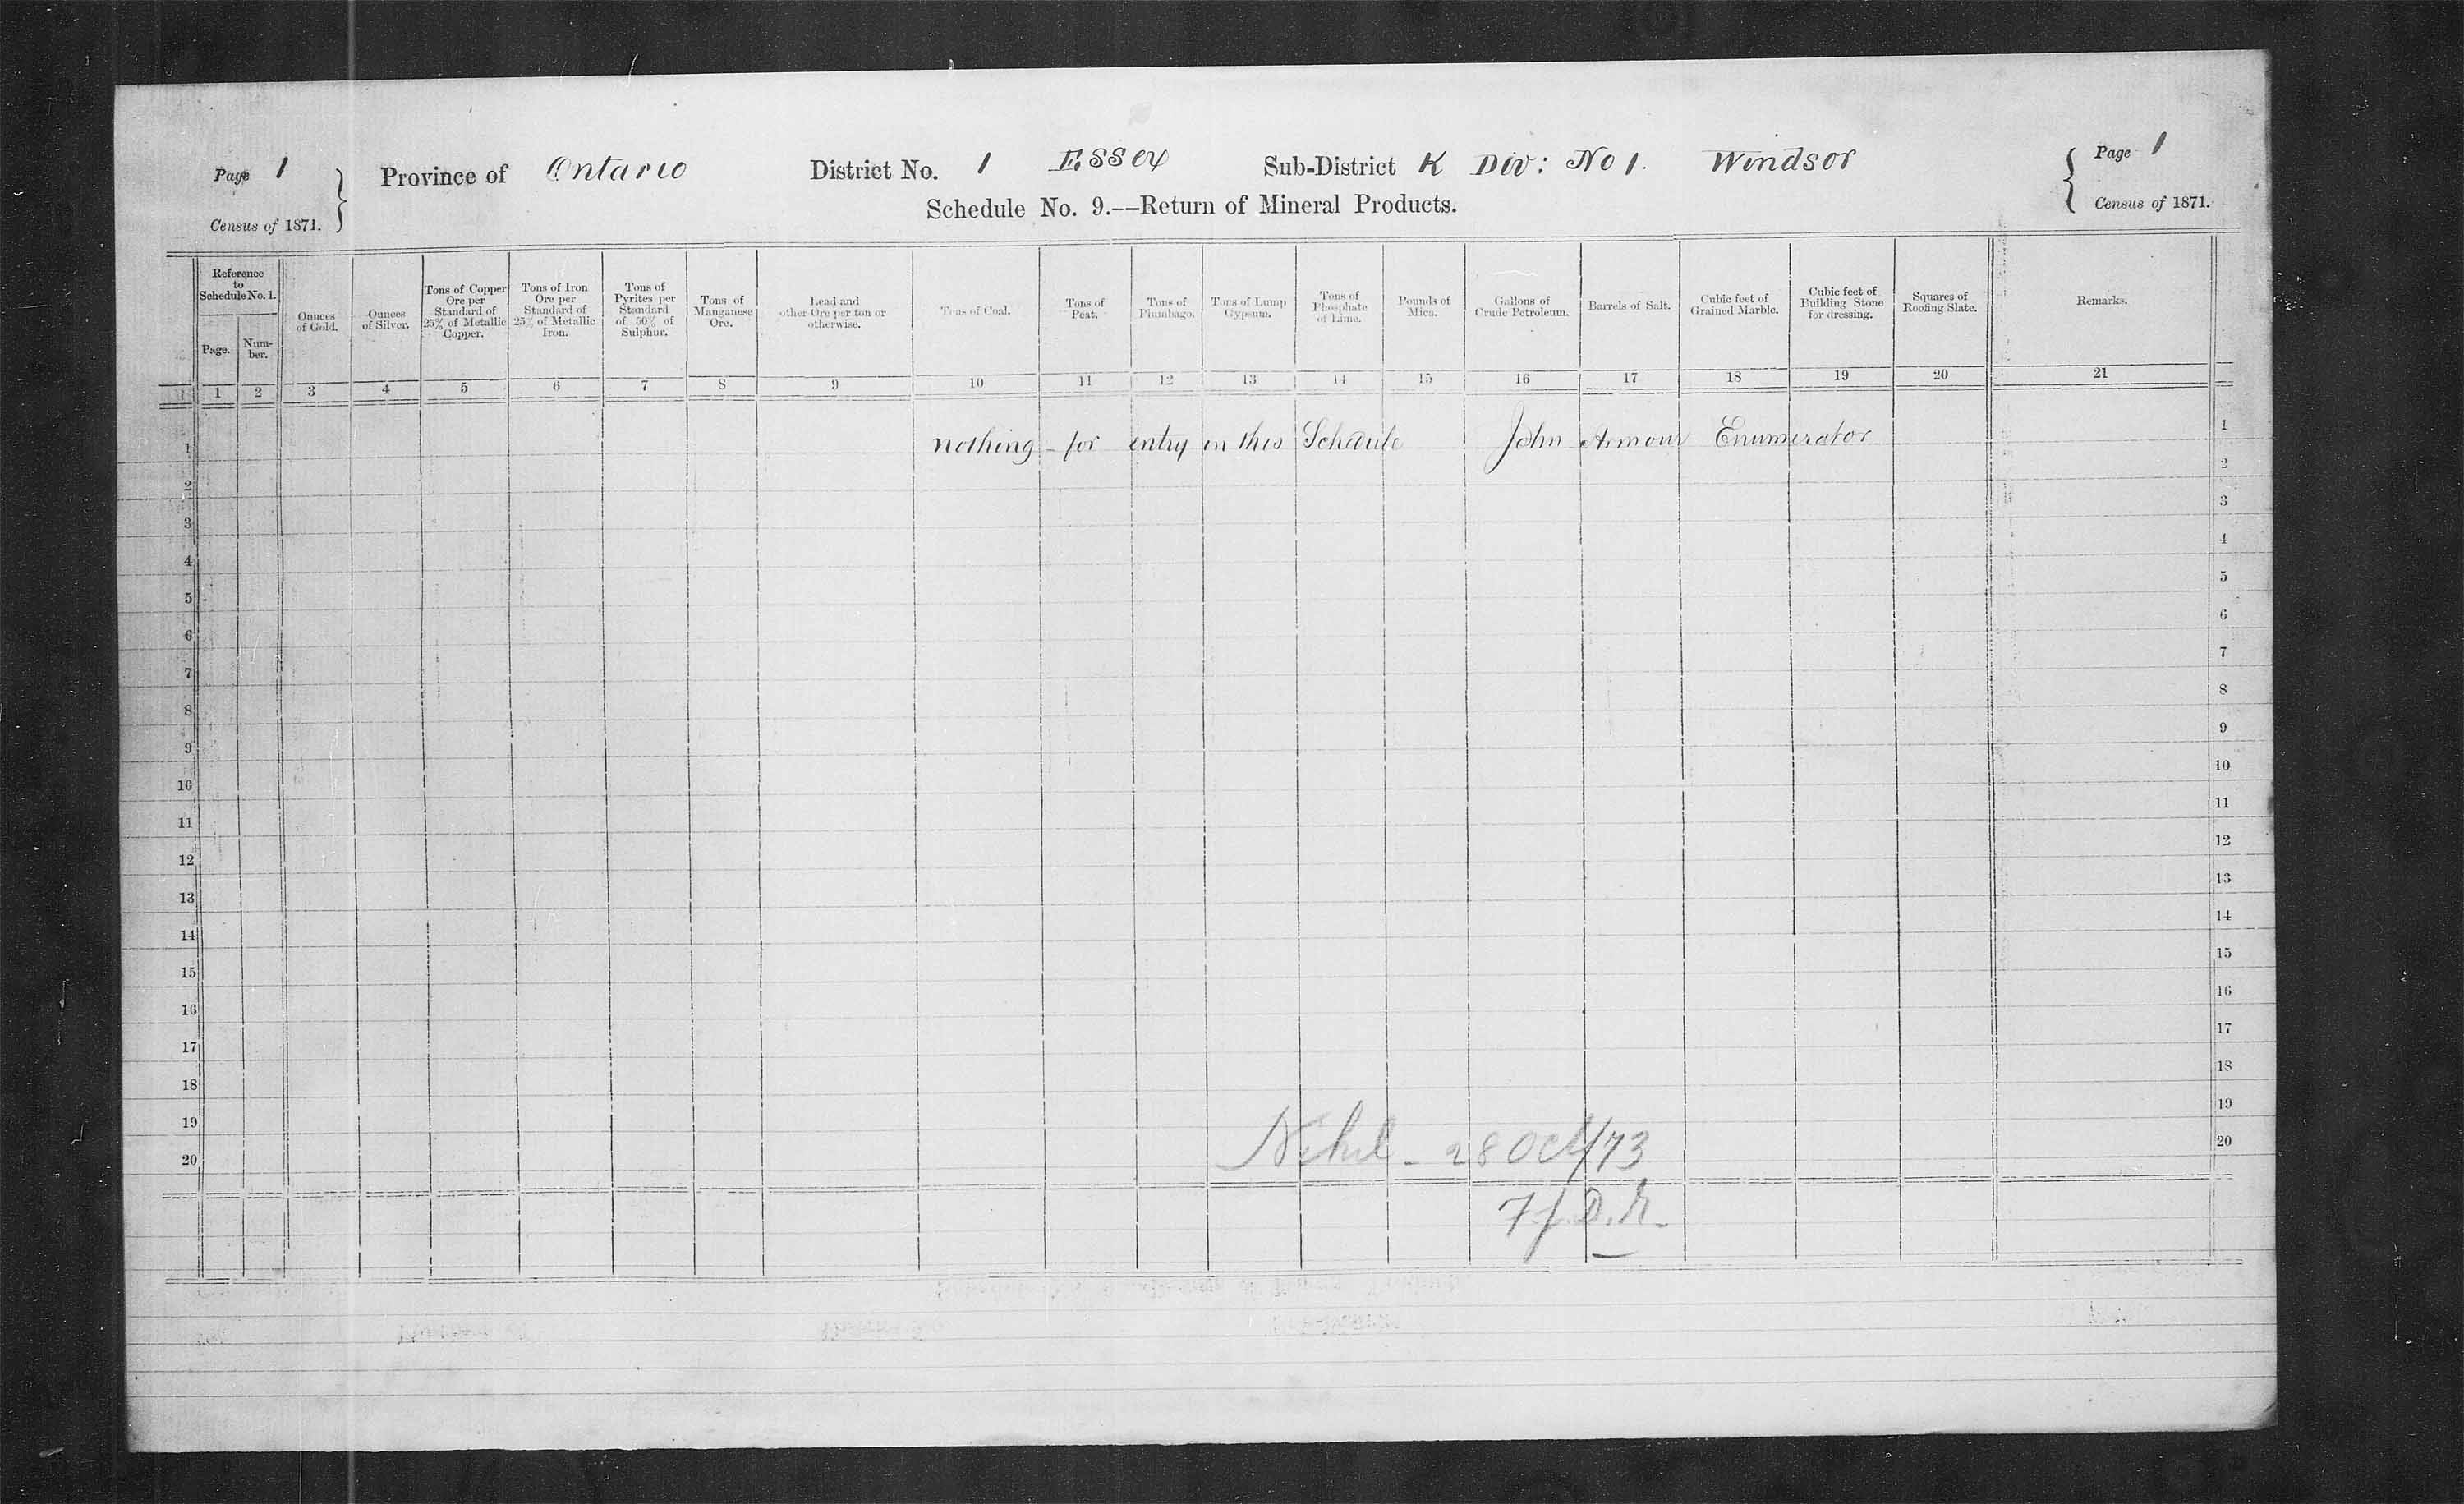 Page 1
Census of 1871.
Province of Ontario District No. 1 Essex Sub-District K Div: No 1. Windsor
Schedule No. 9.—Return of Mineral Products.
Page 1
Census of 1871.
Reference to Schedule No. 1.
Page.
Number.
Ounces of Gold.
Ounces of Silver.
Tons of Copper Ore per Standard of 25% of Metallic Copper.
Tons of Iron Ore per Standard of 25% of Metallic Iron.
Tons of Pyrites per Standard of 50% of Sulphur.
Tons of Manganese Ore.
Lead and other Ore per ton or otherwise.
Tons of Coal.
Tons of Peat.
Tons of Plumbago.
Tons of Lump Gypsum.
Tons of Phosphate of Lime.
Pounds of Mica.
Gallons of Crude Petroleum.
Barrels of Salt.
Cubic feet of Grained Marble.
Cubic feet of Building Stone for dressing.
Squares of Roofing Slate.
Remarks.
1 2 3 4 5 6 7 8 9 10 11 12 13 14 15 16 17 18 19 20 21
1 nothing - for entry in this Schedule John Armour Enumerator 1
2 2
3 3
4 4
5 5
6 6
7 7
8 8
9 9
10 10
11 11
12 12
13 13
14 14
15 15
16 16
17 17
18 18
19 19
20 Nihil - 28 Oct/73 20